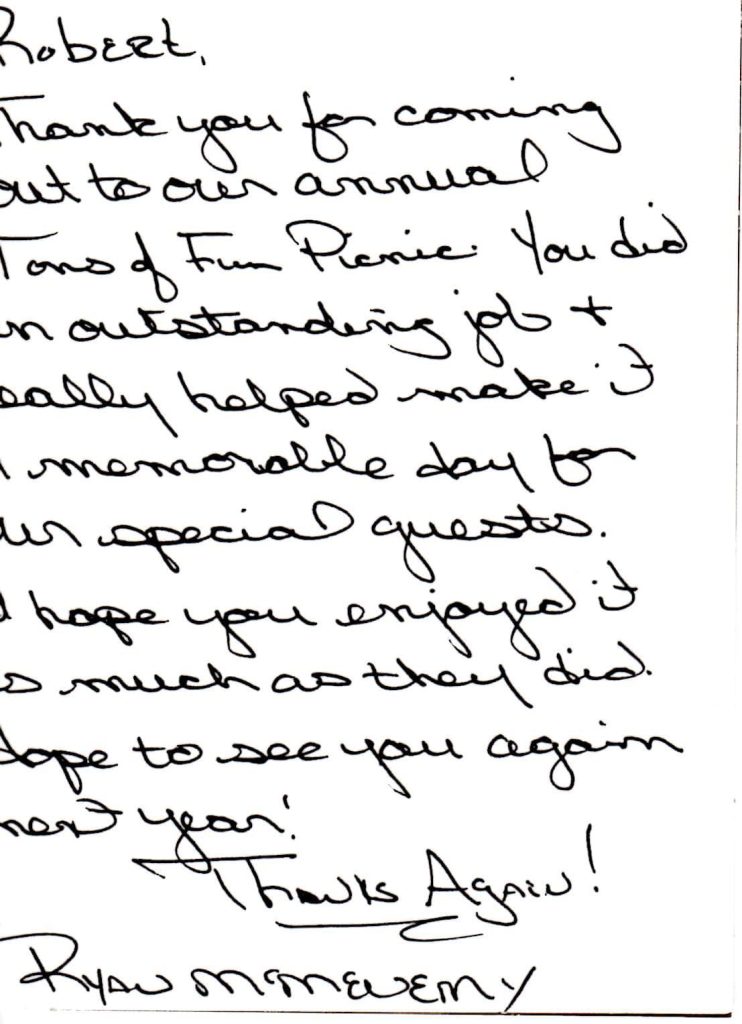 Robert,
Thank you for coming
out to our annual
Tons of Fun Picnic. You did
an outstanding job +
really helped make it
a memorable day for
our special guests.
I hope you enjoyed it
as much as they did.
Hope to see you again
next year!
Thanks Again!
Ryan